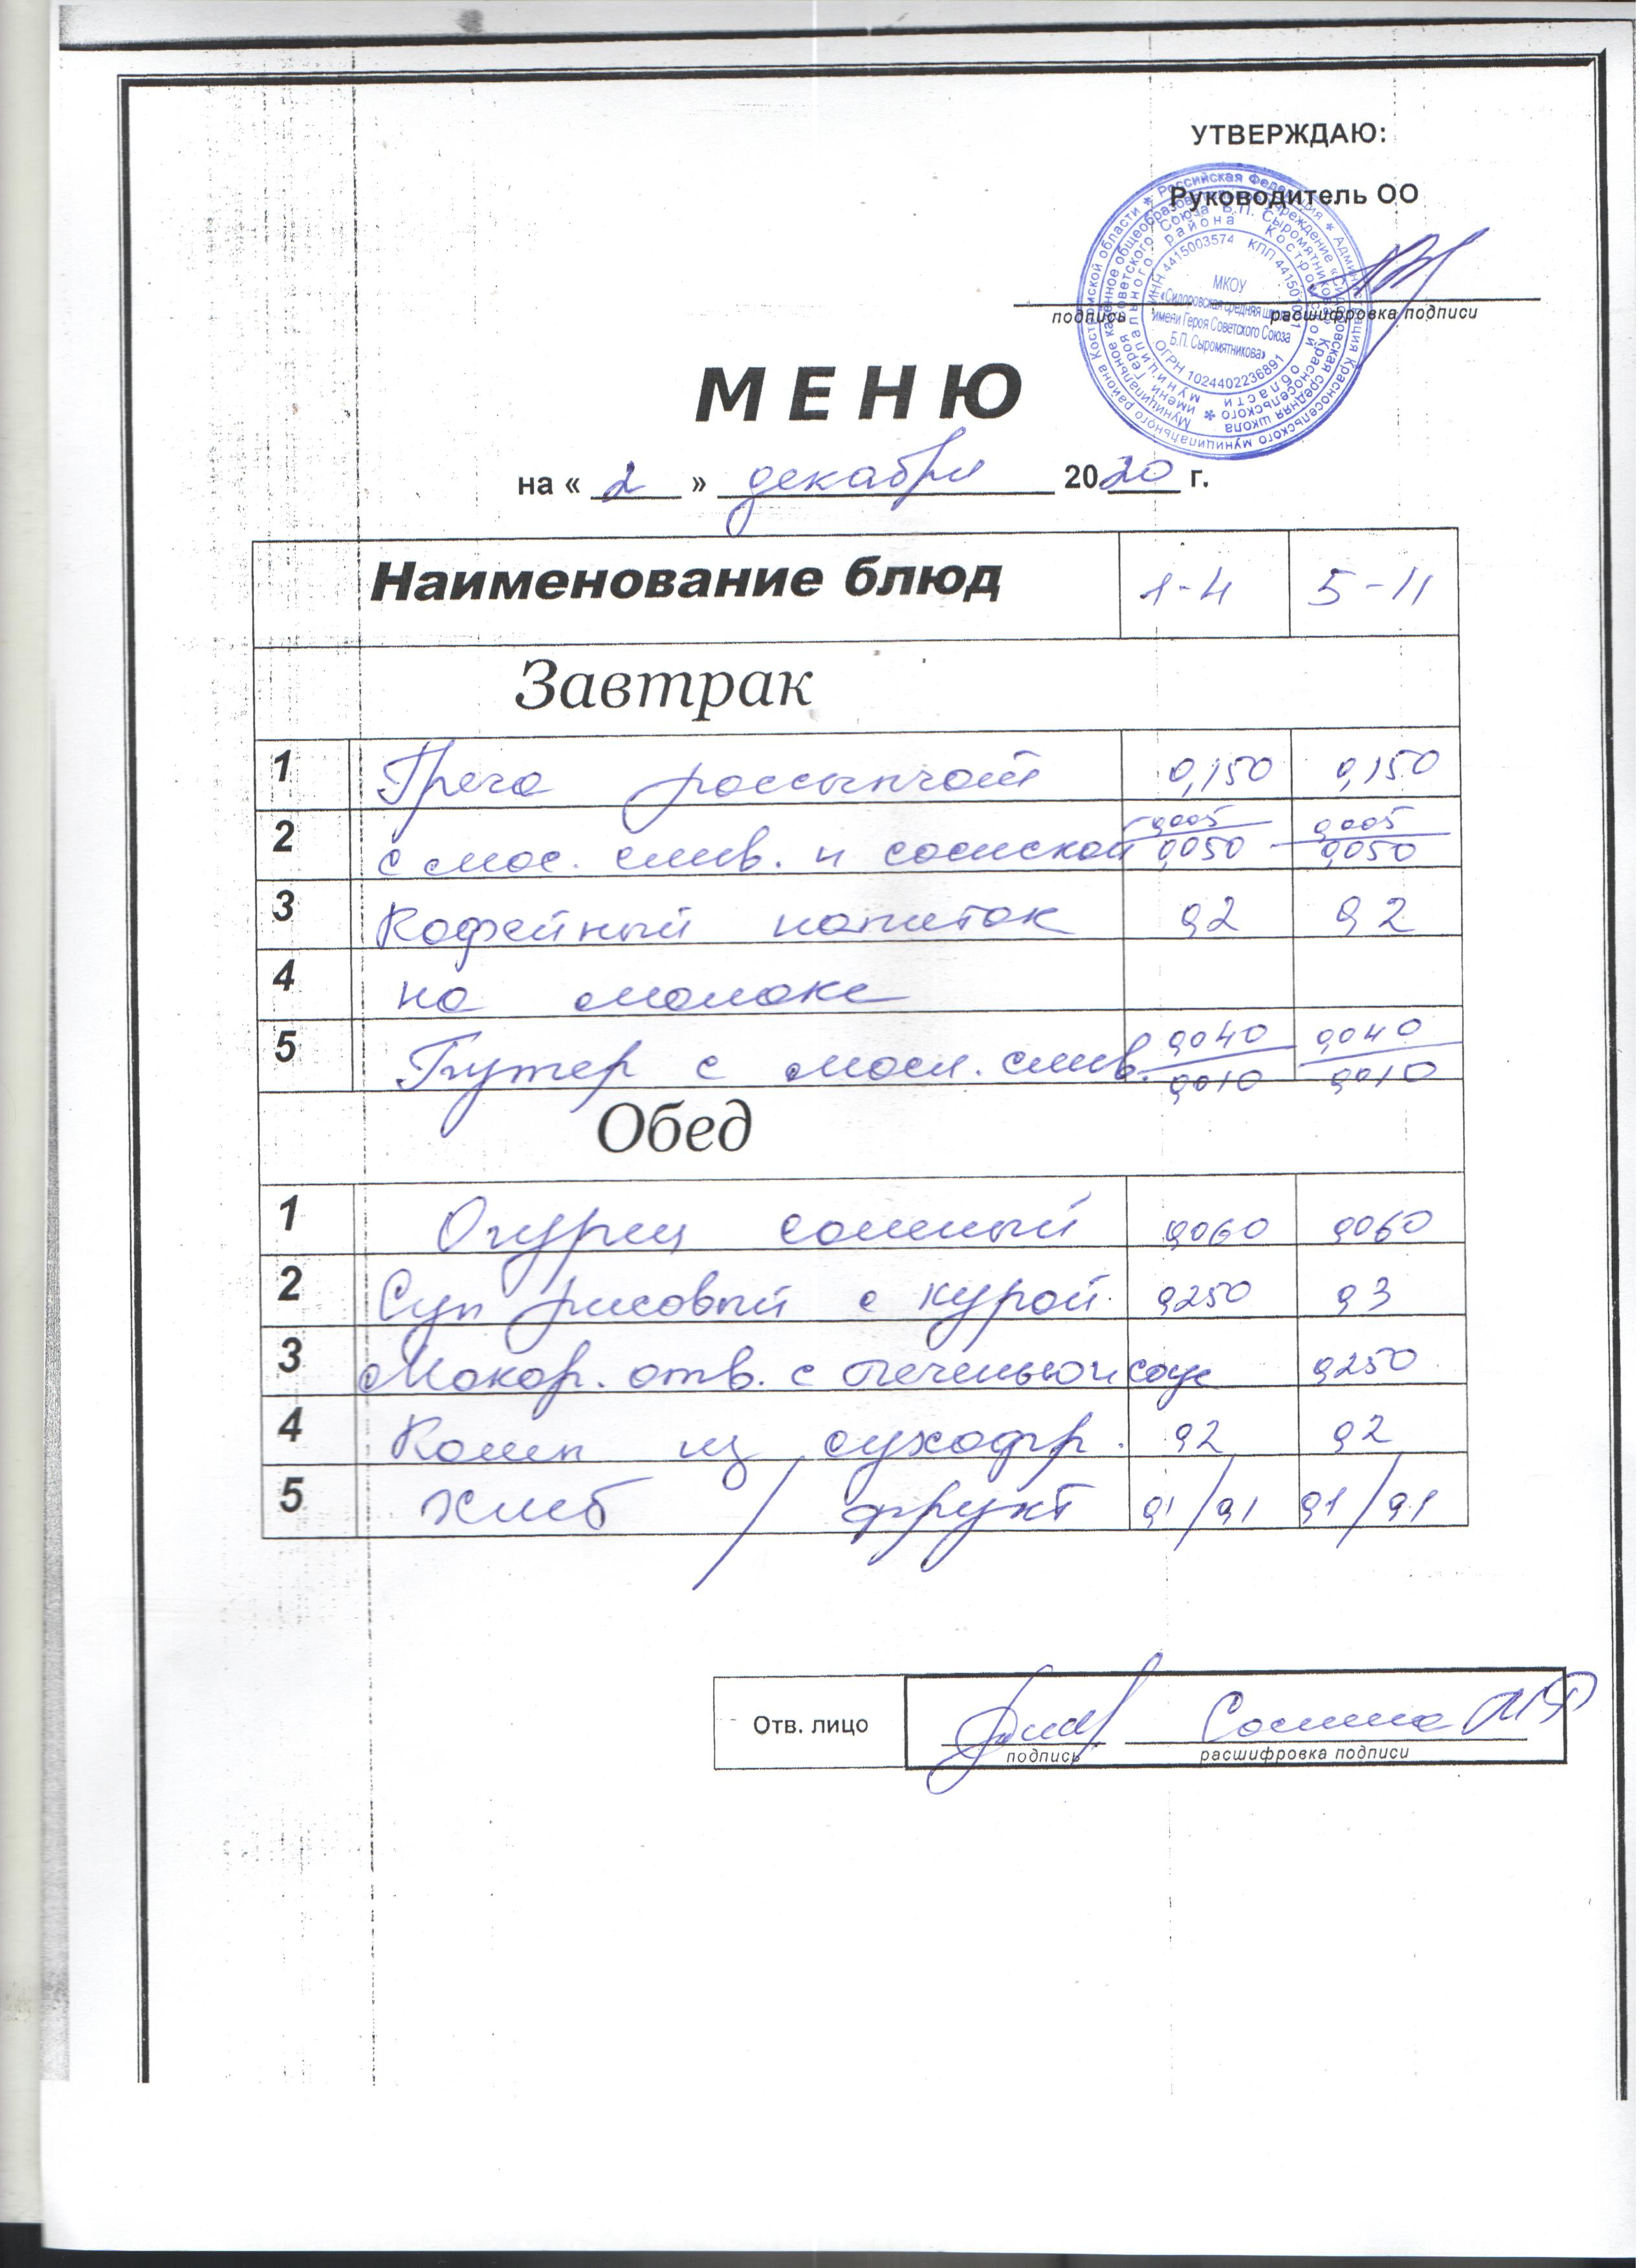 УТВЕРЖДАЮ:
Руководитель ОО
МКОУ
«Сидоровская средняя школа
имени Героя Советского Союза
Б.П. Сыромятникова»
ИНН 4415003574 КПП 441501001
ОГРН 1024402236891
подпись расшифровка подписи
МЕНЮ
на « 2 » декабря 2020 г.
Наименование блюд 1-4 5-11
Завтрак
1 Греча рассыпчат 0,150 0,150
2 с мас. слив. и сосиской 0,005 0,050 0,005 0,050
3 Кофейный напиток 0,2 0,2
4 на молоке
5 Бутер с масл. слив. 0,040 0,010 0,040 0,010
Обед
1 Огурец соленый 0,060 0,060
2 Суп рисовый с курой 0,250 0,3
3 Макар. отв. с печенью и соус 0,250
4 Комп из сухофр. 0,2 0,2
5 Хлеб / фрукт 0,1/0,1 0,1/0,1
Отв. лицо
подпись расшифровка подписи